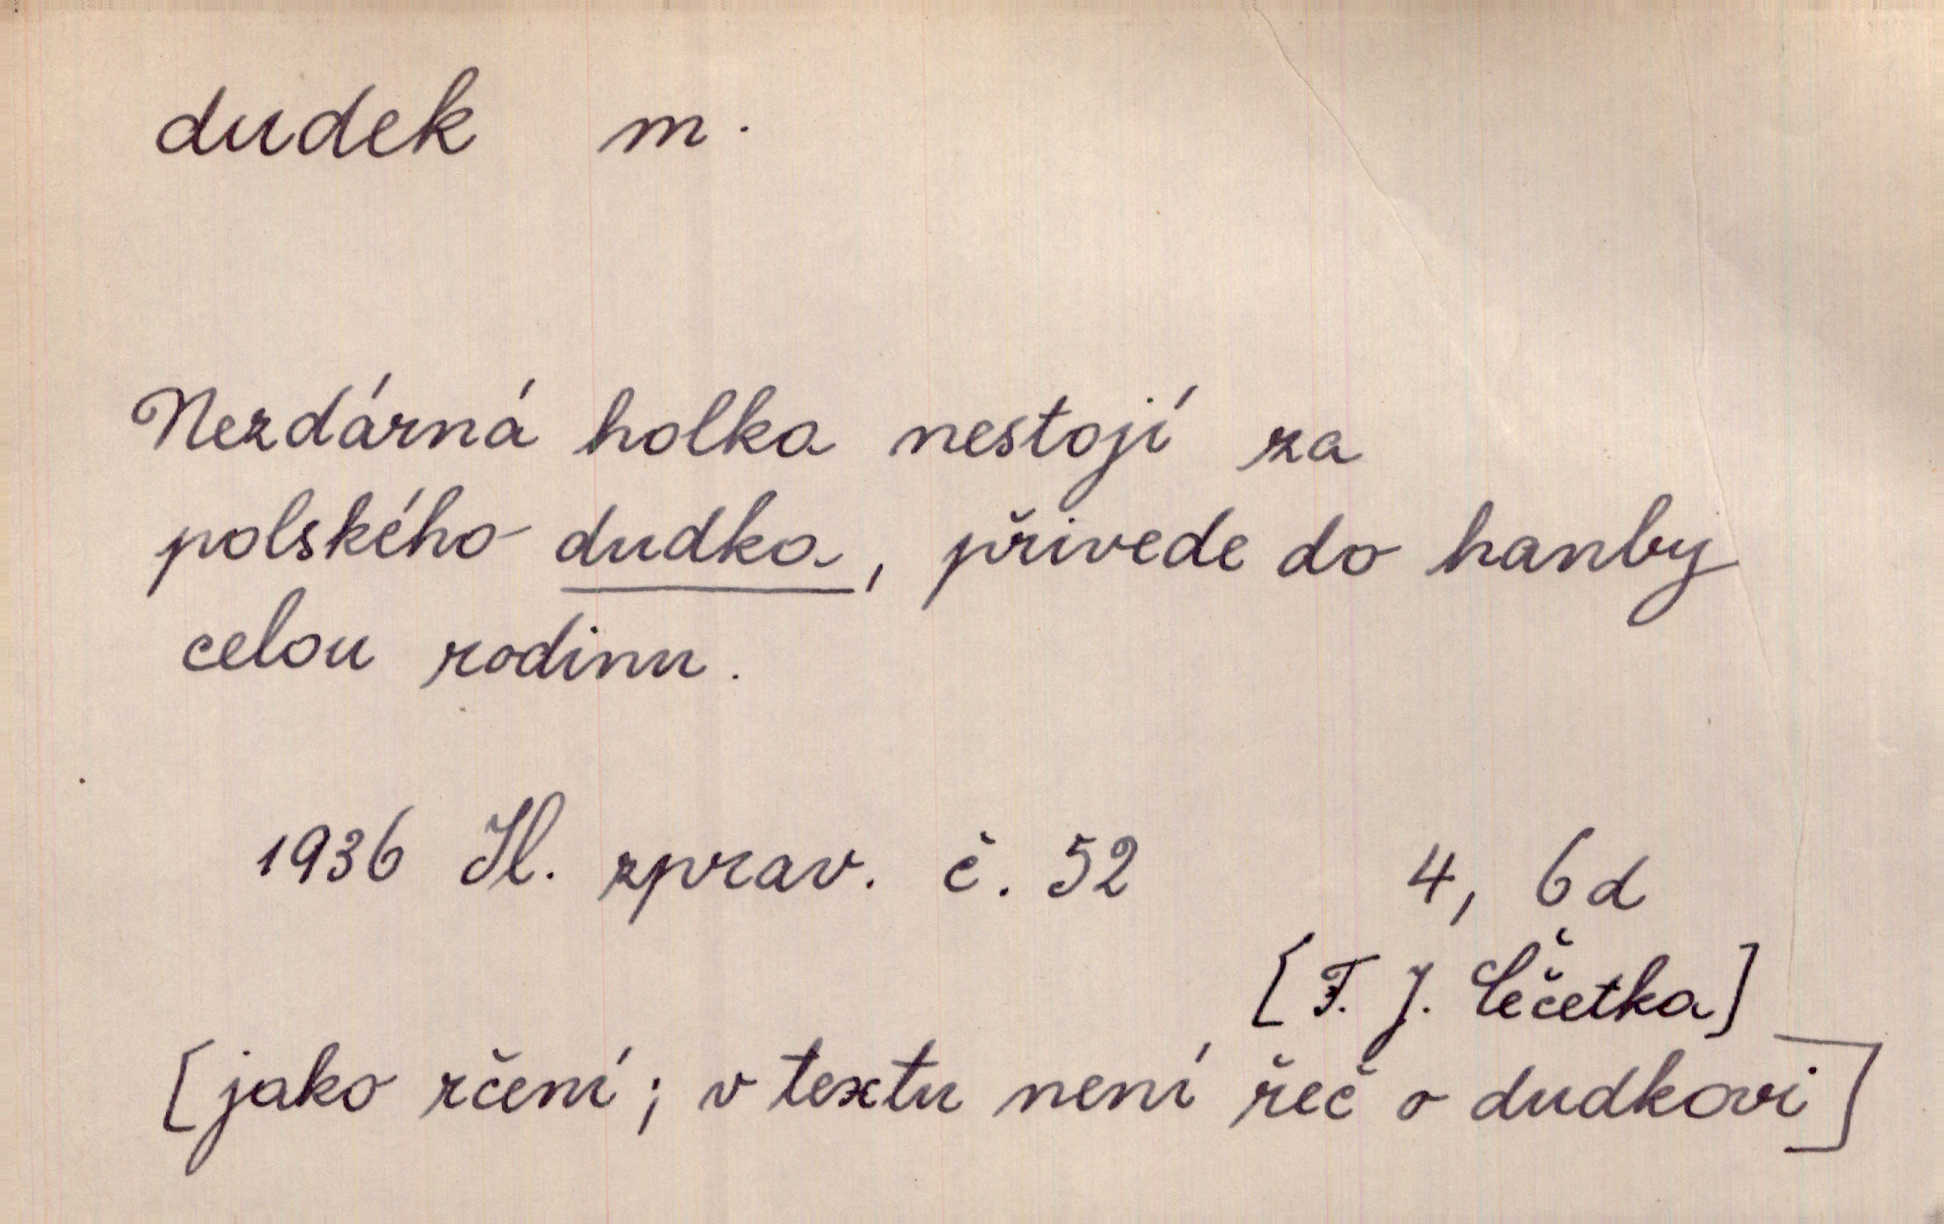 dudek m.
Nezdárná holka nestojí za
polského dudka, přivede do hanby
celou rodinu.
1936 Il. zprav. č. 52 4, 6d
[F. J. Čečetka]
[jako rčení; v textu není řeč o dudkovi]